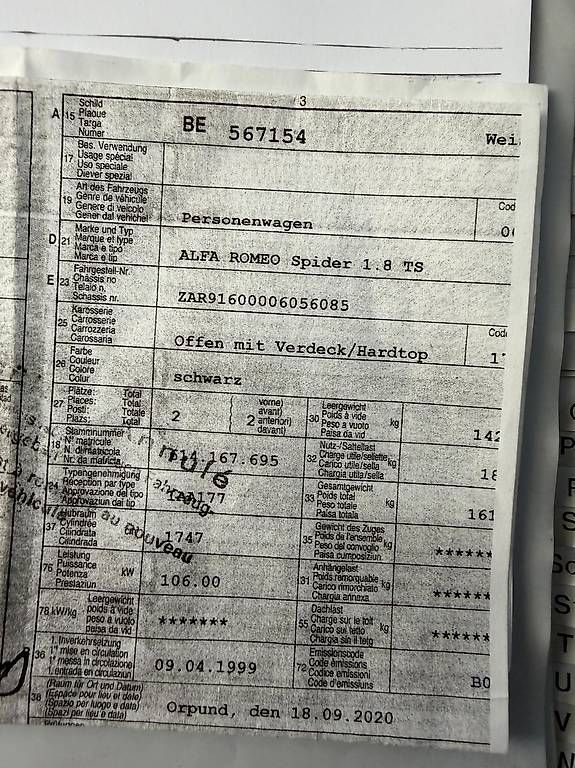 3
A 15 Schild
Plaque
Targa
Numer
BE 567154 Wei
17 Bes. Verwendung
Usage spécial
Uso speciale
Diever spezial
19 Art des Fahrzeugs
Genre de véhicule
Genere di veicolo
Gener dal vehichel
Personenwagen
Cod
D 21 Marke und Typ
Marque et type
Marca e tipo
Marca e tip
ALFA ROMEO Spider 1.8 TS
E 23 Fahrgestell-Nr.
Châssis no
Telaio n.
Schassis nr.
ZAR91600006056085
25 Karosserie
Carrosserie
Carrozzeria
Carossaria
Offen mit Verdeck/Hardtop
Cod
26 Farbe
Couleur
Colore
Colur
schwarz
27 Plätze: Total
Places: Total
Posti: Totale
Plazs: Total
2
2
vorne)
avant)
anteriori)
davant)
30 Leergewicht
Poids à vide
Peso a vuoto
Paisa da vid
kg
142
18 Stammnummer
N° matricule
N. di matricola
Nr. da matricla
.167.695
32 Nutz-/Sattellast
Charge utile/sellette
Carico utile/sella
Chargia utila/sella
kg
18
Typengenehmigung
Réception par type
Approvazione del tipo
Approvaziun dal tip
177
33 Gesamtgewicht
Poids total
Peso totale
Paisa totala
kg
161
37 Hubraum
Cylindrée
Cilindrata
Cilindrada
1747
35 Gewicht des Zuges
Poids de l'ensemble
Peso del convoglio
Paisa cumposiziun
kg
******
76 Leistung
Puissance
Potenza
Prestaziun
kW
106.00
31 Anhängelast
Poids remorquable
Carico rimorchiato
Chargia annexa
kg
******
78 kW/kg Leergewicht
poids à vide
peso a vuoto
paisa da vid
*******
55 Dachlast
Charge sur le toit
Carico sul tetto
Chargia sin il tetg
kg
******
36 1. Inverkehrsetzung
1re mise en circulation
1a messa in circolazione
1. entrada en circulaziun
09.04.1999
72 Emissionscode
Code émissions
Codice emissioni
Code d'emissiuns
B0
38 (Raum für Ort und Datum)
(Espace pour lieu et date)
(Spazio per luogo e data)
(Spazi per lieu e data)
Orpund, den 18.09.2020
au nouveau